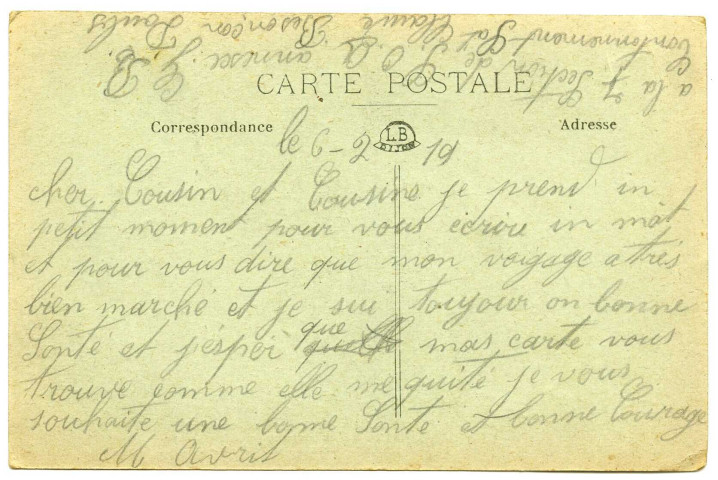 a la 7 Section de S. O. A. annexe. J. C. B.
Contonnement St Claude Besonçon Doubs
CARTE POSTALE
Correspondance
LB
DIJON
Adresse
le 6-2 19
cher Cousin et Cousine je prend in
petit moment pour vous ecrire in mot
et pour vous dire que mon voyage a tres
bien marché et je sui toujour on bonne
Sonte et j'esper que mas carte vous
trouve comme elle me quité je vous
souhaite une bonne Sonte et bonne Courage
M Avril